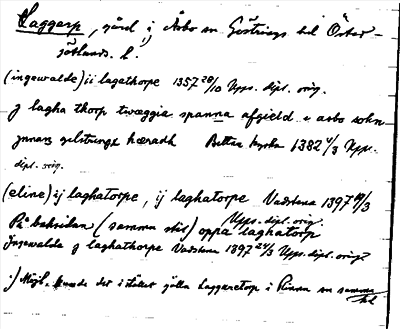 Laggarp, gård i Åsbo sn Göstrings hd Öster-
götlands l.
(ingewalde) ij lagathorpe 1357 28/10 Upps. dipl. orig.
j lagha thorp twæggia spanna afgield i asbo sokn
jnnan gelstrings hæradh Bettna kyrka 1382 4/3 Upp.
dipl. orig.
(eline) ij laghatorpe, ij laghatorpe Vadstena 1397 /3
Upps. dipl. orig.
På baksidan (samma stil) oppa laghatorp
Jngewalde j laghathorpe Vadstena 1397 24/3 Upps. dipl. orig.
·) Möjl. kunde det i stället gälla Laggaretorp i Rinna sn samma
hd